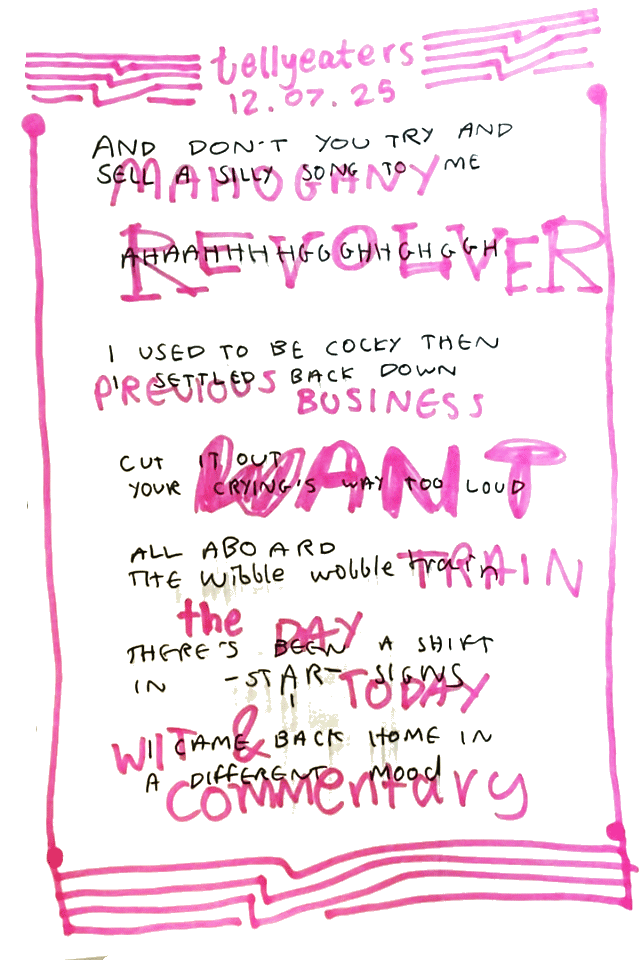 tellyeaters
12.07.25
AND DON'T YOU TRY AND
SELL A SILLY SONG TO ME
MAHOGANY
REVOLVER
AHAAHHHHGGGHHGHGGH
I USED TO BE COCKY THEN
I SETTLED BACK DOWN
PREVIOUS
BUSINESS
CUT IT OUT
YOUR CRYING'S WAY TOO LOUD
WANT
ALL ABOARD
THE wibble wobble train
TRAIN
the DAY
THERE'S BEEN A SHIFT
IN -STAR- SIGNS
TODAY
WIT &
I CAME BACK HOME IN
A DIFFERENT MOOD
commentary